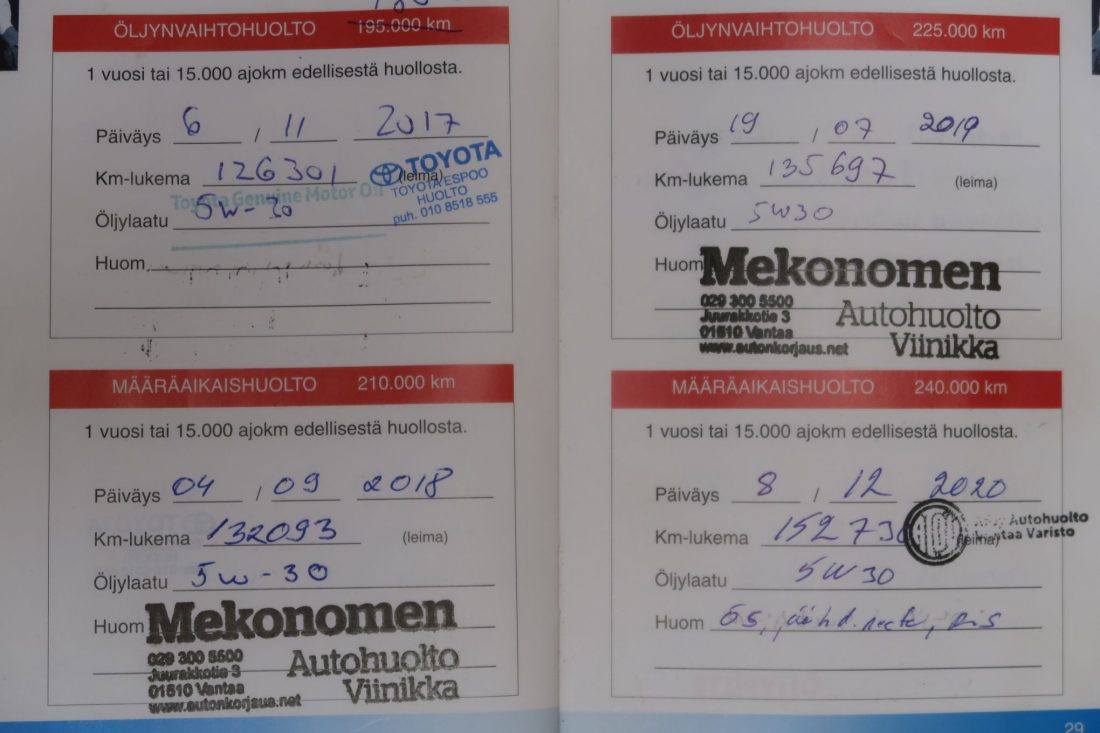 ÖLJYNVAIHTOHUOLTO 195.000 km
1 vuosi tai 15.000 ajokm edellisestä huollosta.
Päiväys 6 / 11 2017
Km-lukema 126301 (leima)
TOYOTA
TOYOTA ESPOO
HUOLTO
puh. 010 8518 555
Toyota Genuine Motor Oil
Öljylaatu 5W-30
Huom.
MÄÄRÄAIKAISHUOLTO 210.000 km
1 vuosi tai 15.000 ajokm edellisestä huollosta.
Päiväys 04 / 09 2018
Km-lukema 132093 (leima)
Öljylaatu 5W-30
Huom
Mekonomen
029 300 5500
Juurakkotie 3
01510 Vantaa
www.autonkorjaus.net
Autohuolto
Viinikka
ÖLJYNVAIHTOHUOLTO 225.000 km
1 vuosi tai 15.000 ajokm edellisestä huollosta.
Päiväys 19 / 07 2019
Km-lukema 135697 (leima)
Öljylaatu 5W30
Huom
Mekonomen
029 300 5500
Juurakkotie 3
01510 Vantaa
www.autonkorjaus.net
Autohuolto
Viinikka
MÄÄRÄAIKAISHUOLTO 240.000 km
1 vuosi tai 15.000 ajokm edellisestä huollosta.
Päiväys 8 / 12 2020
Km-lukema 152730 (leima)
Autohuolto
Varisto
Öljylaatu 5W30
Huom ös,
29